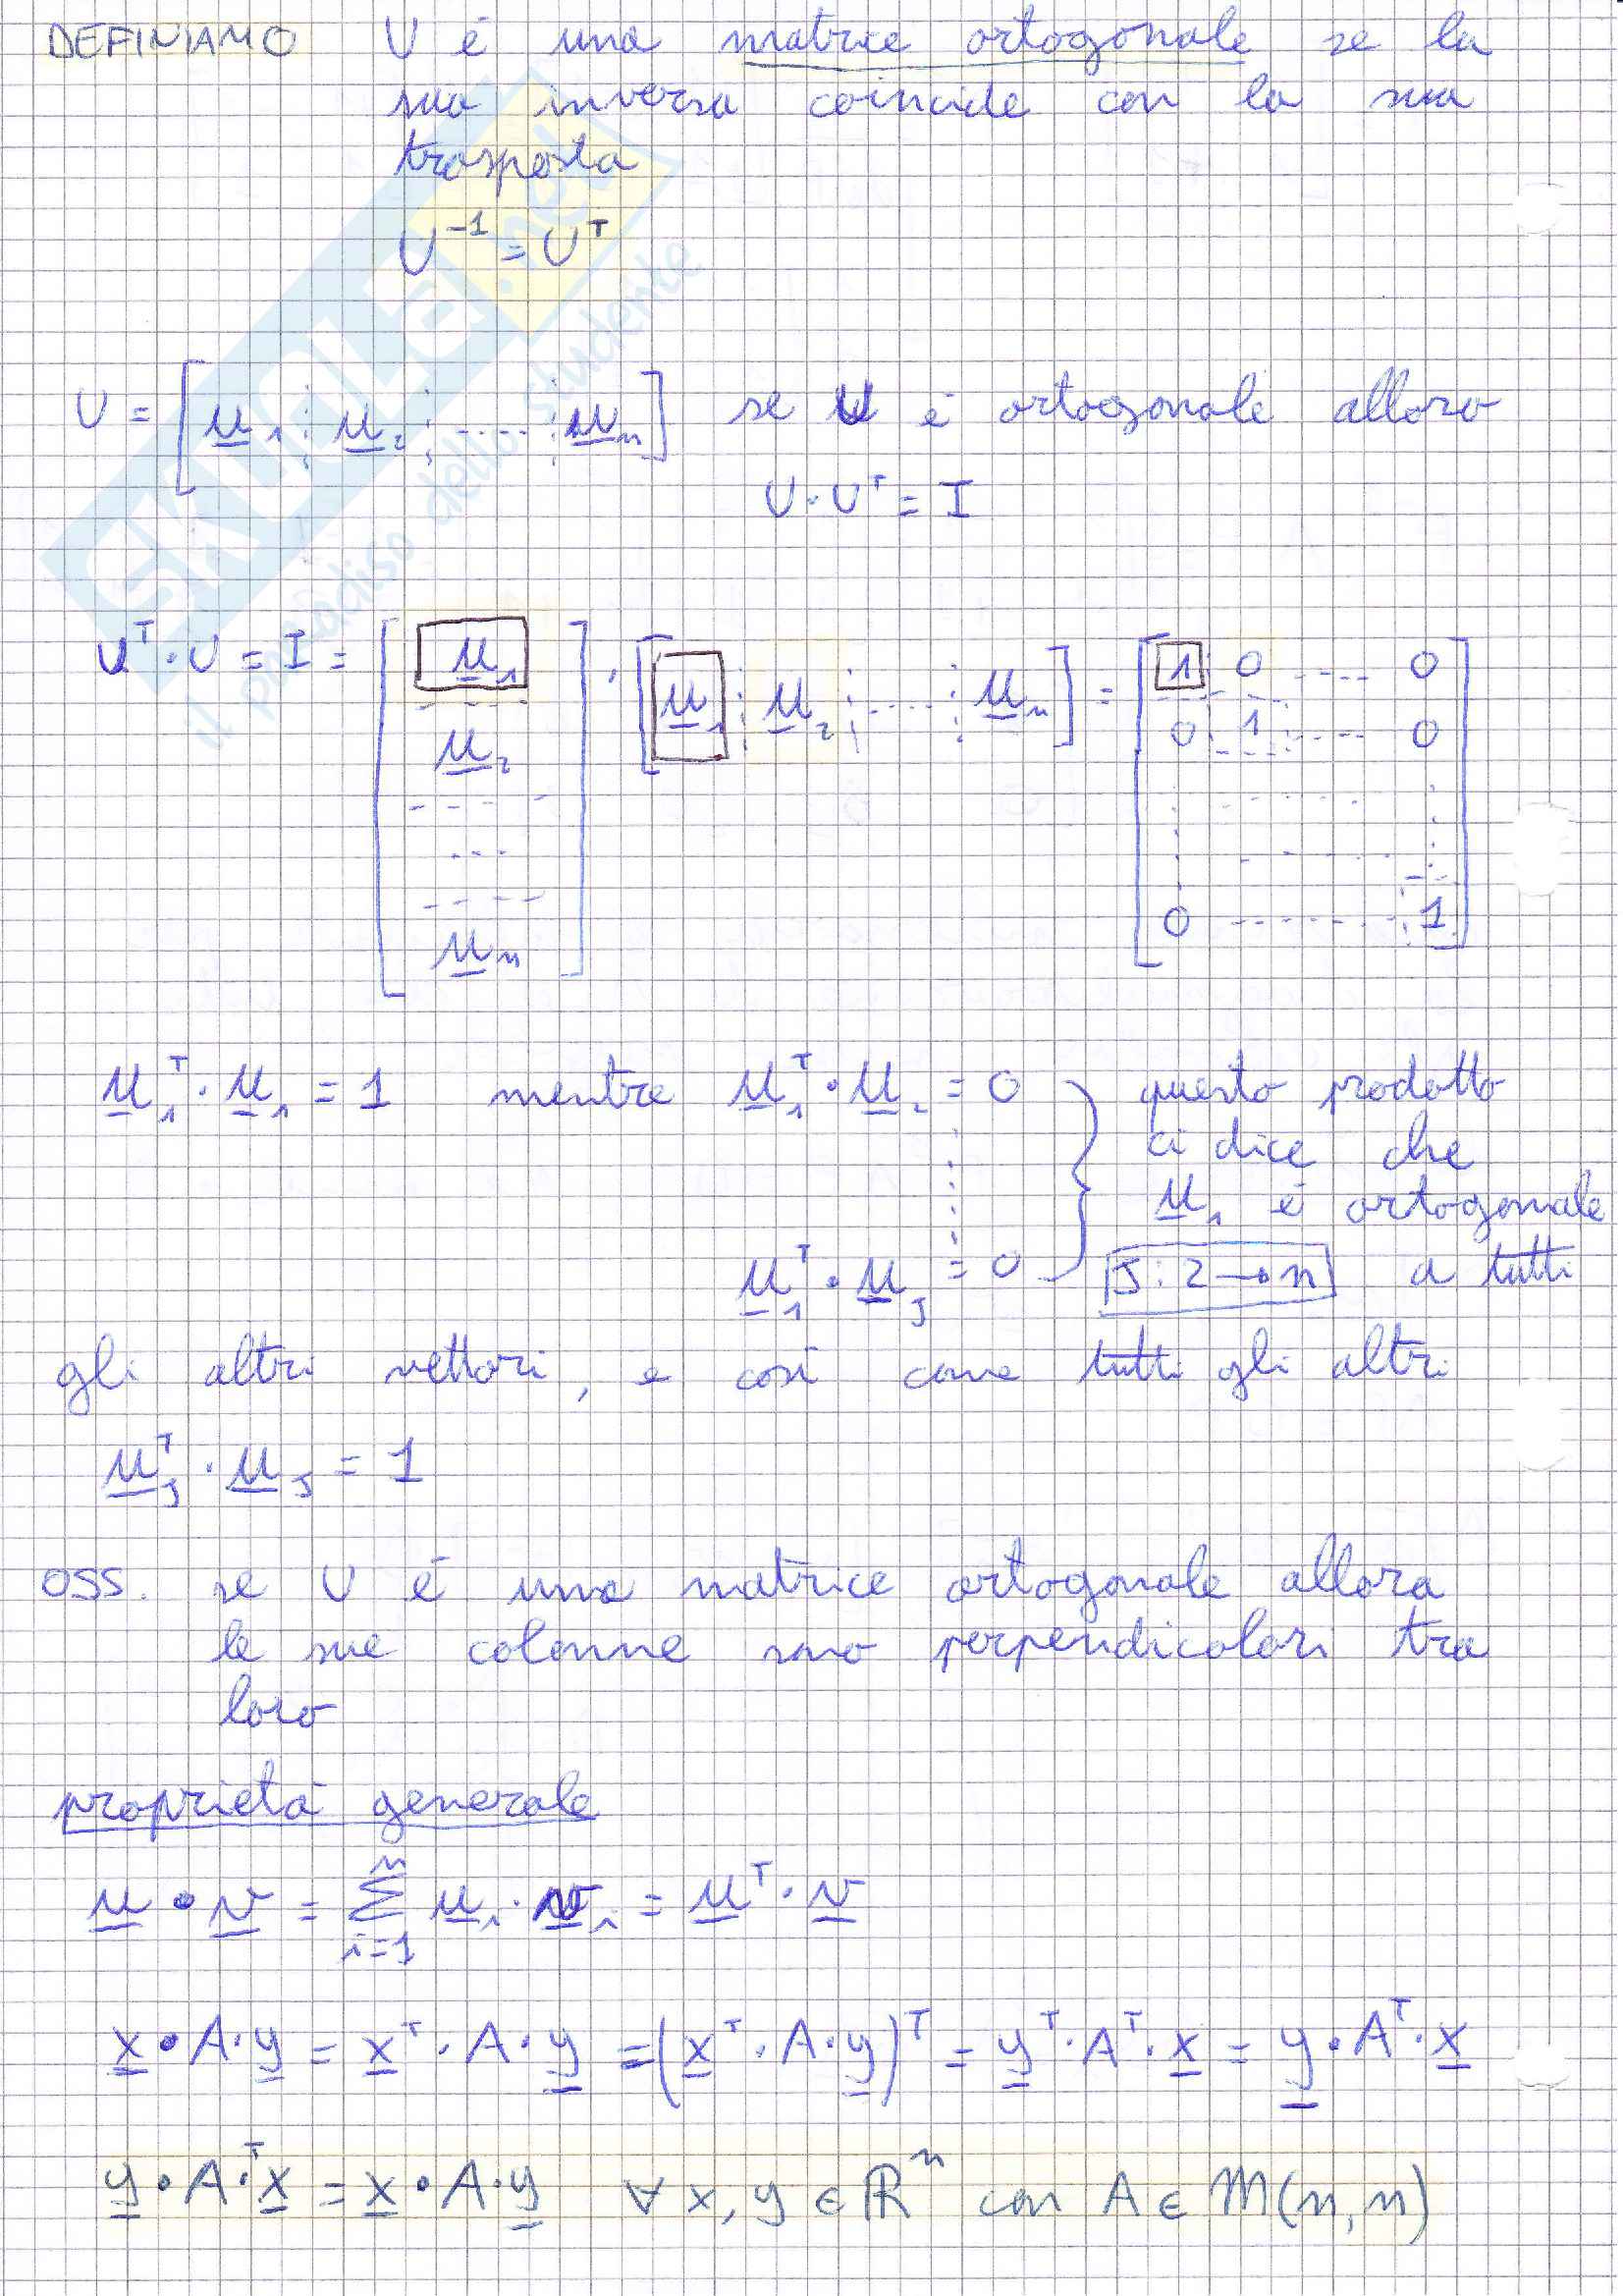 DEFINIAMO U é una matrice ortogonale se la
sua inversa coincide con la sua
trasposta
U⁻¹ = Uᵀ
U = [u₁ ⋮ u₂ ⋮ ..... ⋮ uₙ] se U é ortogonale allora
U · Uᵀ = I
Uᵀ · U = I = [u₁ u₂ ... uₙ] · [u₁ ⋮ u₂ ⋮ ..... ⋮ uₙ] = [1 0 ..... 0
0 1 ..... 0
0 ..... 1]
u₁ᵀ · u₁ = 1 mentre u₁ᵀ · u₂ = 0 questo prodotto
ci dice che
u₁ é ortogonale
u₁ᵀ · uJ = 0 J: 2 → n a tutti
gli altri vettori, e così come tutti gli altri
uJᵀ · uJ = 1
OSS. se U é una matrice ortogonale allora
le sue colonne sono perpendicolari tra
loro
proprietà generale
u • v = Σ i=1 n uᵢ · vᵢ = uᵀ · v
x • A · y = xᵀ · A · y = (xᵀ · A · y)ᵀ = yᵀ · Aᵀ · x = y • Aᵀ · x
y • Aᵀ · x = x • A · y ∀ x, y ∈ ℝⁿ con A ∈ M(n,n)
SKUOLA.net
il paradiso dello studente